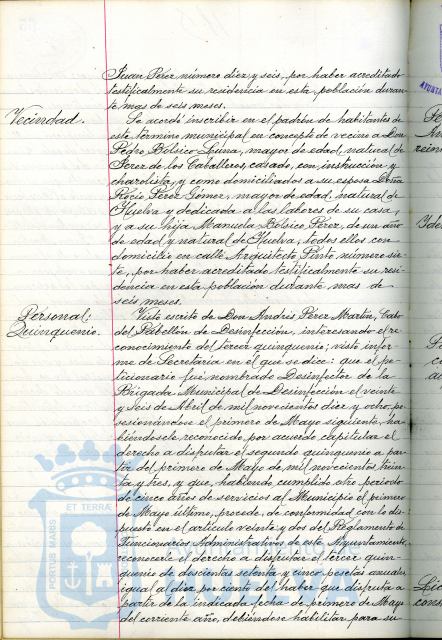 Juan Pérez número diez y seis, por haber acreditado
testificalmente su residencia en esta población duran-
te mas de seis meses.
Vecindad.
Se acordó inscribir en el padrón de habitantes de
este término municipal en concepto de vecino a Don
Pedro Bolsico Luna, mayor de edad, natural de
Jerez de los Caballeros, casado, con instrucción y
charolista, y como domiciliados a su esposa Doña
Rocio Pérez Gómez, mayor de edad, natural de
Huelva y dedicada a las labores de su casa,
y a su hija Manuela Bolsico Pérez, de un año
de edad y natural de Huelva, todos ellos con
domicilio en calle Arquitecto Pinto número sie-
te, por haber acreditado testificalmente su resi-
dencia en esta población durante mas de
seis meses.
Personal;
Quinquenio.
Visto escrito de Don Andrés Pérez Martín, Cabo
del Pabellón de Desinfección, interesando el re-
conocimiento del tercer quinquenio; visto infor-
me de Secretaria en el que se dice: que el pe-
ticionario fué nombrado Desinfector de la
Brigada Municipal de Desinfección el veinte
y seis de Abril de mil novecientos diez y ocho, po-
sesionándose el primero de Mayo siguiente, ha-
biéndosele reconocido, por acuerdo capitular el
derecho a disfrutar el segundo quinquenio a par-
tir del primero de Mayo de mil novecientos trein-
ta y tres, y que, habiendo cumplido otro periodo
de cinco años de servicios al Municipio el primero
de Mayo último, procede, de conformidad con lo dis-
puesto en el artículo veinte y dos del Reglamento de
Funcionarios Administrativos de este Ayuntamiento,
reconocerle el derecho a disfrutar el tercer quin-
quenio de doscientas setenta y cinco pesetas anuales
igual al diez por ciento del haber que disfruta a
partir de la indicada fecha de primero de Mayo
del corriente año, debiéndose habilitar para su
PORTUS MARIS
ET TERRA